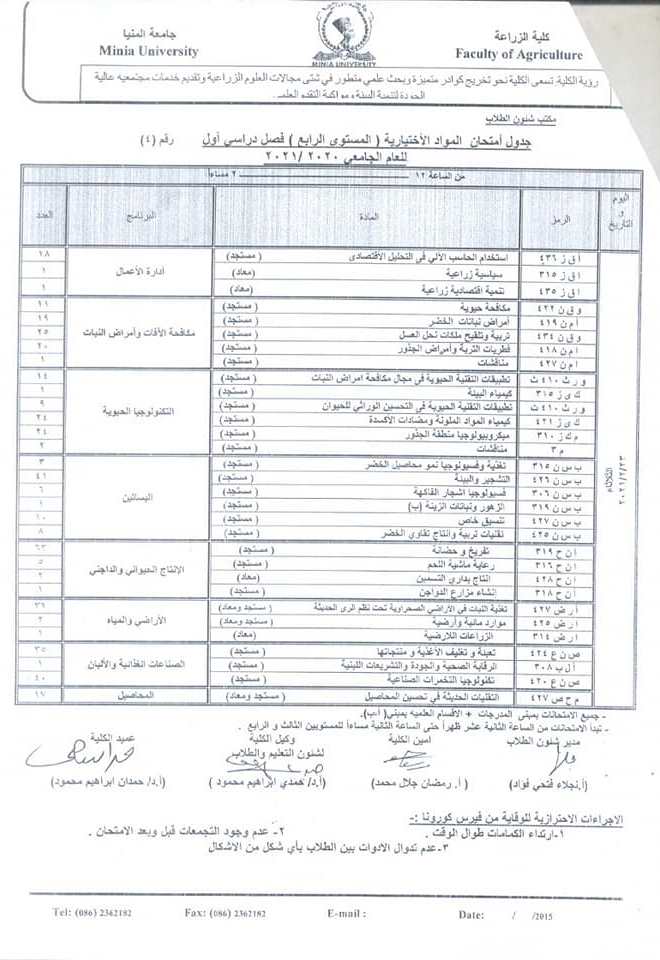 جامعة المنيا
Minia University
MINIA UNIVERSITY
كلية الزراعة
Faculty of Agriculture
رؤية الكلية: تسعى الكلية نحو تخريج كوادر متميزة وبحث علمي متطور في شتى مجالات العلوم الزراعية وتقديم خدمات مجتمعية عالية
الجودة لتنمية البيئة ومواكبة التقدم العلمي.
مكتب شئون الطلاب
جدول أمتحان المواد الأختيارية ( المستوى الرابع ) فصل دراسي أول رقم (٤)
للعام الجامعي ٢٠٢٠ /٢٠٢١
من الساعة ١٢ ــ ٢ مساءا
اليوم و التاريخ الرمز المادة البرنامج العدد
الثلاثاء ٢٠٢١/٢/٢٣
أ ق ز ٤٣٦ استخدام الحاسب الآلي في التحليل الأقتصادى (مستجد) ١٨
أ ق ز ٣١٥ سياسية زراعية (معاد) أدارة الأعمال ١
أ ق ز ٤٣٥ تنمية اقتصادية زراعية (معاد) ١
و ق ن ٤٢٢ مكافحة حيوية ( مستجد) ١١
أ م ن ٤١٩ أمراض نباتات الخضر (مستجد) ١٩
و ق ن ٤٣٤ تربية وتلقيح ملكات نحل العسل (مستجد) مكافحة الآفات وأمراض النبات ٢٥
أ م ن ٤١٨ فطريات التربة وأمراض الجذور (مستجد) ٢٠
أ م ن ٤٢٧ مناقشات (مستجد) ١
و ر ث ٤١٠ ت تطبيقات التقنية الحيوية في مجال مكافحة امراض النبات (مستجد) ١٤
ك ى ز ٣١٥ كيمياء البيئة (مستجد) ١
و ر ث ٤١٠ ت تطبيقات التقنية الحيوية في التحسين الوراثي للحيوان (مستجد) ٩
ك ى ز ٤٢١ كيمياء المواد الملونة ومضادات الأكسدة (مستجد) التكنولوجيا الحيوية ٢٤
م ك ز ٣١٠ ميكروبيولوجيا منطقة الجذور (مستجد) ٢٤
م ٣ مناقشات (مستجد) ٢
ب س ن ٣١٥ تغذية وفسيولوجيا نمو محاصيل الخضر (مستجد) ٣
ب س ن ٤٢٦ التشجير والبيئة (مستجد) ٤١
ب س ن ٣٠٦ فسيولوجيا اشجار الفاكهة (مستجد) البساتين ٦
ب س ن ٣١٩ الزهور ونباتات الزينة (ب) (مستجد) ١
ب س ن ٤٢٧ تنسيق خاص (مستجد) ١٠
ب س ن ٤٢٥ تقنيات تربية وأنتاج تقاوي الخضر (مستجد) ٨
أ ن ح ٣١٩ تفريخ و حضانة ( مستجد) ٦٣
أ ن ح ٣١٦ رعاية ماشية اللحم ( مستجد) ٥
أ ن ح ٤٢٨ انتاج بدارى التسمين (معاد) الإنتاج الحيواني والداجني ٢
أ ن ح ٣١٨ إنشاء مزارع الدواجن (مستجد) ١
أ ر ض ٤٢٧ تغذية النبات في الأراضي الصحراوية تحت نظم الرى الحديثة ( مستجد ومعاد) ٣٦
أ ر ض ٤٢٥ موارد مائية وأرضية ( مستجد) الأراضي والمياه ٢
ا ر ض ٣١٤ الزراعات اللارضية (معاد) ١
ص ن ع ٤٢٤ تعبئة و تغليف الأغذية و منتجاتها ( مستجد) ٣٥
أ ل ب ٣٠٨ الرقابة الصحية والجودة والتشريعات اللبنية ( مستجد) الصناعات الغذائية والألبان ١
ص ن ع ٤٢٠ تكنولوجيا التخمرات الصناعية ( مستجد) ٤٠
م ح ص ٤٢٧ التقنيات الحديثة في تحسين المحاصيل ( مستجد ومعاد) المحاصيل ١٧
- جميع الامتحانات بمبنى المدرجات + الأقسام العلميه بمبنى( أ،ب).
- تبدأ الامتحانات من الساعة الثانية عشر ظهراً حتى الساعة الثانية مساءاً للمستويين الثالث و الرابع .
مدير شئون الطلاب امين الكلية وكيل الكلية عميد الكلية
لشئون التعليم والطلاب
(أ.نجلاء فتحي فؤاد) ( أ. رمضان جلال محمد) (أ.د/ حمدي ابراهيم محمود ) (أ.د/ حمدان ابراهيم محمود)
الاجراءات الاحترازية للوقاية من فيرس كورونا :-
١-ارتداء الكمامات طوال الوقت . ٢- عدم وجود التجمعات قبل وبعد الامتحان .
٣-عدم تدوال الادوات بين الطلاب بأي شكل من الاشكال
Tel: (086) 2362182 Fax: (086) 2362182 E-mail : Date: / /2015